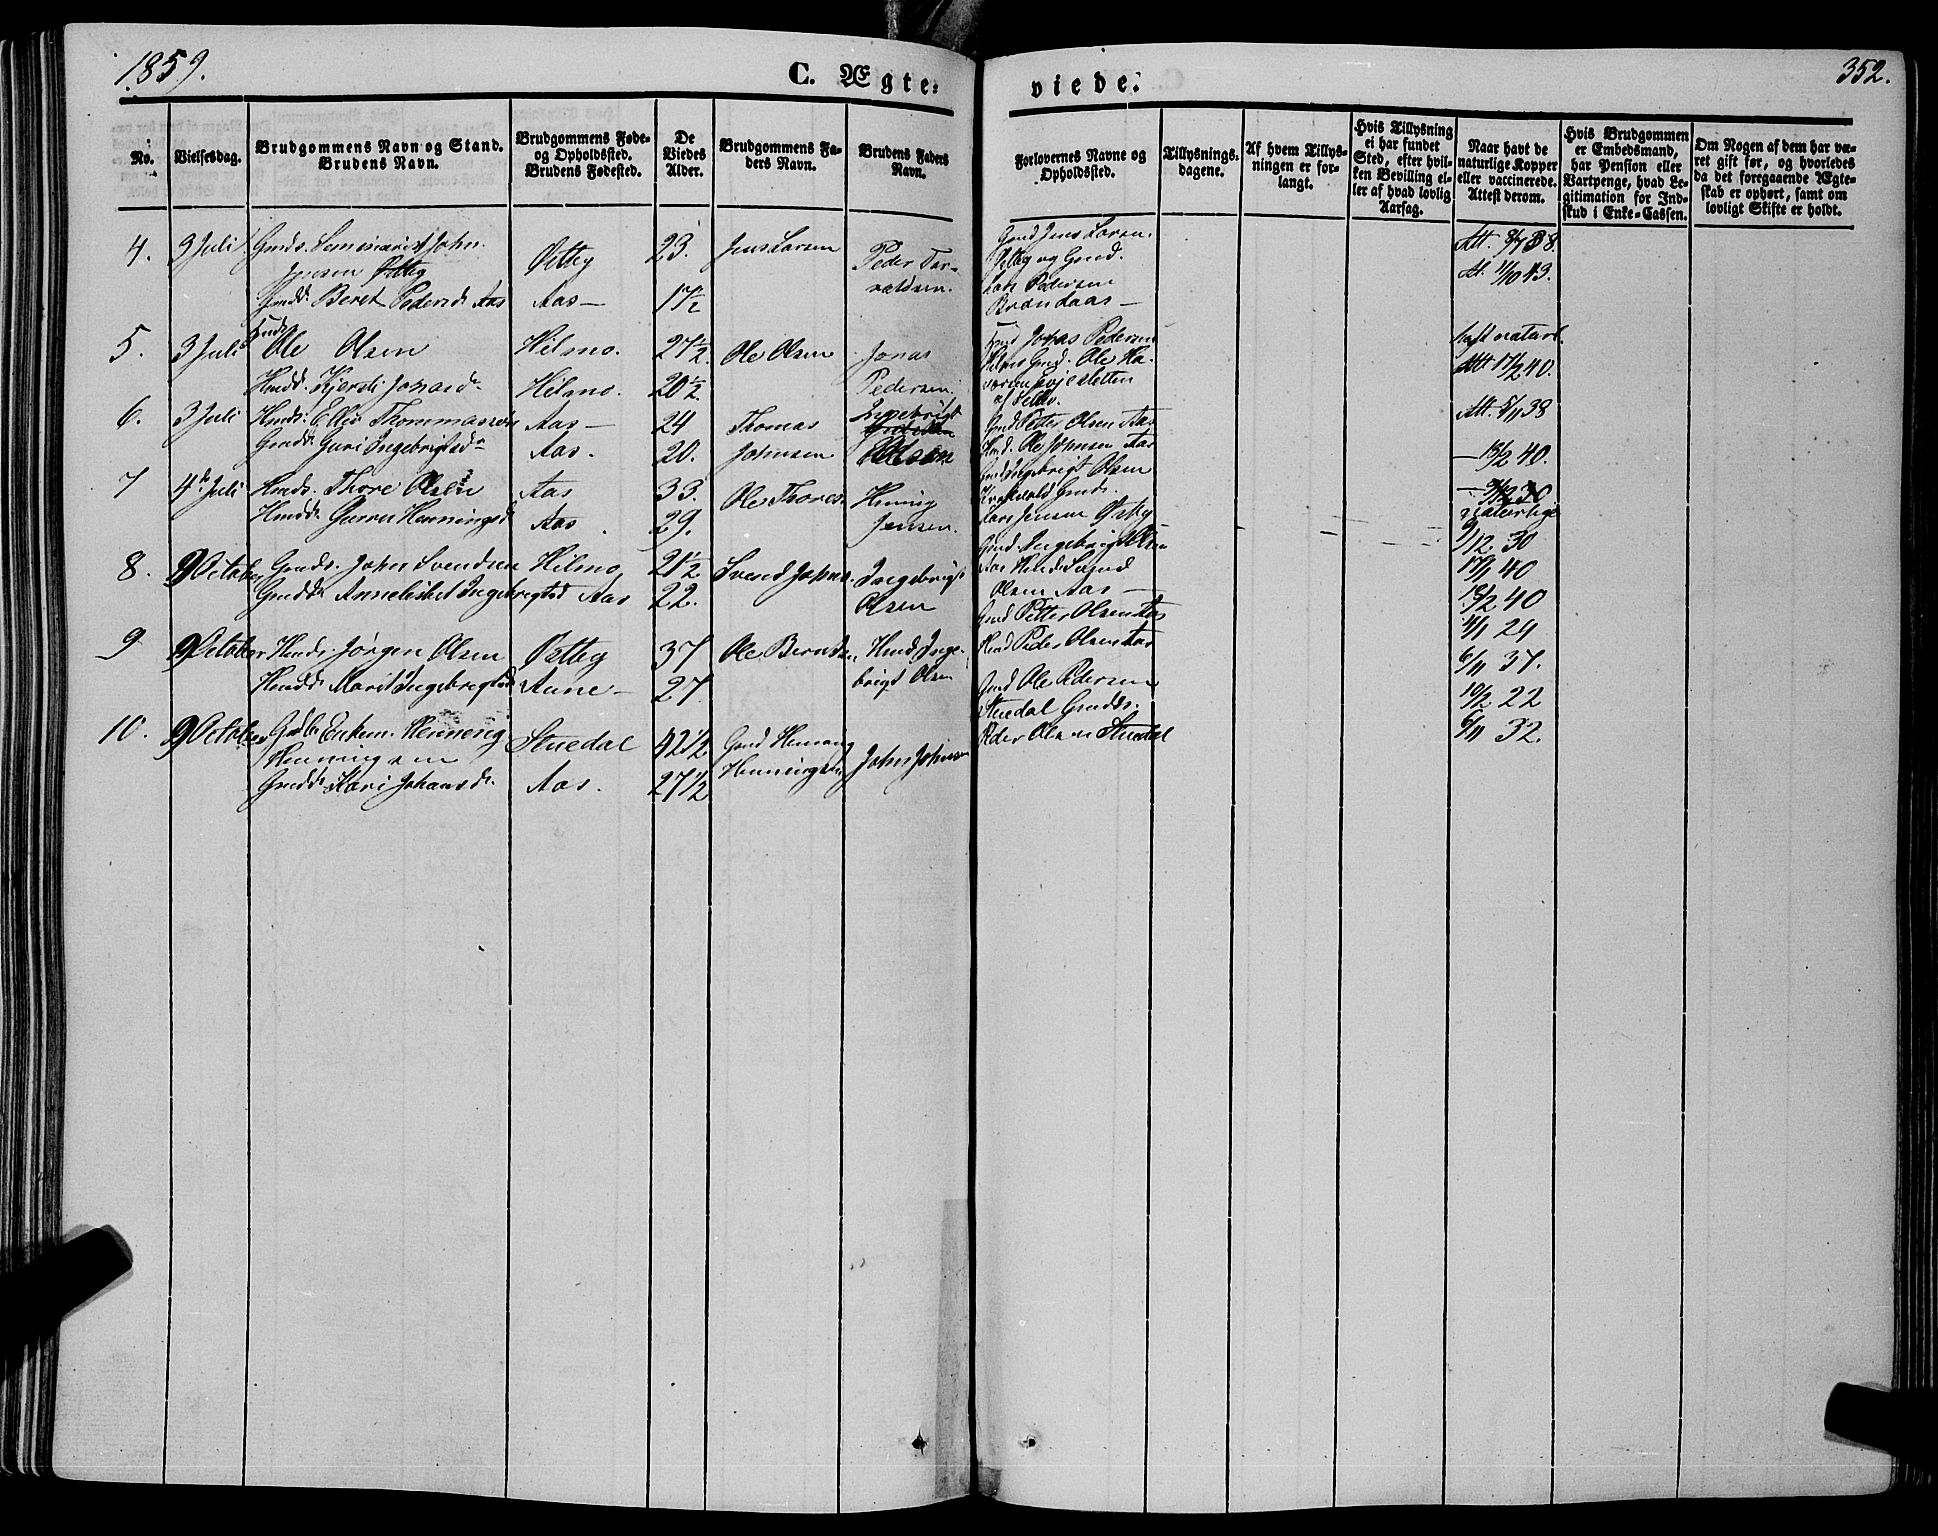 1859.
C. Ægte=
viede.
352.
No.
Vielsesdag.
Brudgommens Navn og Stand.
Brudens Navn.
Brudgommens Føde-
og Opholdssted.
Brudens Fødested.
De
Viedes
Alder.
Brudgommens Fa-
ders Navn.
Brudens Faders
Navn.
Forlovernes Navne og
Opholdssted.
Tillysnings-
dagene.
Af hvem Tillys-
ningen er for-
langt.
Hvis Tillysning
ei har fundet
Sted, efter hvil-
ken Bevilling el-
ler af hvad lovlig
Aarsag.
Naar havt de
naturlige Kopper
eller vaccinerede.
Attest derom.
Hvis Brudgommen
er Embedsmand,
har Pension eller
Vartpenge, hvad Le-
gitimation for Ind-
skud i Enke-Cassen.
Om Nogen af dem har væ-
ret gift før, og hvorledes
da det foregaaende Ægte-
skab er ophørt, samt om
lovligt Skifte er holdt.
4.
3 Juli
Gmds. Seminarist John
Jensen Østby
Gmdd. Beret Pedersd. Aas
Østby
Aas —
23.
17½
Jens Larsen
Peder Tor-
valdsen.
Gmd Jens Larsen
Østby og Gmd.
Lars Pedersen
Brændaas —
Att. 9/7 38.
At. 1/10 43.
5.
3 Juli
Ole Olsen
Hmdd. Kjersti Jonasd.
Hilmo.
Hilmo.
27½
20½
Ole Olsen
Jonas
Pedersen
Jonas Pedersen
Hilmo Gmd. Ole Ha-
af Selbo.
havt naturl.
Att 17/2 40.
6.
3 Juli
Hmds. Thommassen
Gmdd. Guri Ingebrigtsdr
Aas —
Aas.
24
20.
Thomas
Johnsen
Ingebrigt
Olsen
Gmd Petter Olsen Aas
Hmd. Ole Johnsen Aas
Att. 5/11 38
— 18/2 40.
7
4de Juli
Hmds. Thore Olsen
Hmdd. Henningsd
Aas
Aas.
33.
29.
Ole Thores.
Henning
Jensen.
Gmd Ingebrigt Olsen
Gmds.
Lars Jensen Østby
naturlige
9/12 30
8.
9 October
Gmds. John Svendsen
Gmdd. Annelisbet Ingebrigtsd
Hilmo
Aas
21½
22.
Svend Johns.
Ingebrigt
Olsen
Gmd. Ingebrigt Olsen
Aas Hmd Svend
Olsen Aas —
17/9 40
18/2 40
9
9 October
Hmds. Jørgen Olsen
Hmdd. Marit Ingebrigtsd
Østby
Aune —
37
27
Ole Berndsen
Hmd Inge-
brigt Olsen
Gmd Petter Olsen Aas
Hmd Peder Olsen Aas
29
6/11 37.
10.
9 October
Enkem. Henning
Henningsen
Gmdd. Kari Johansd.
Stuedal
Aas.
42½
27½
Gmd Henning
Henningsen
John Johnsen
Gmd Ole Pedersen
Stuedal Gmds.
Peder Olsen Stuedal
19/2 22
6/11 32.